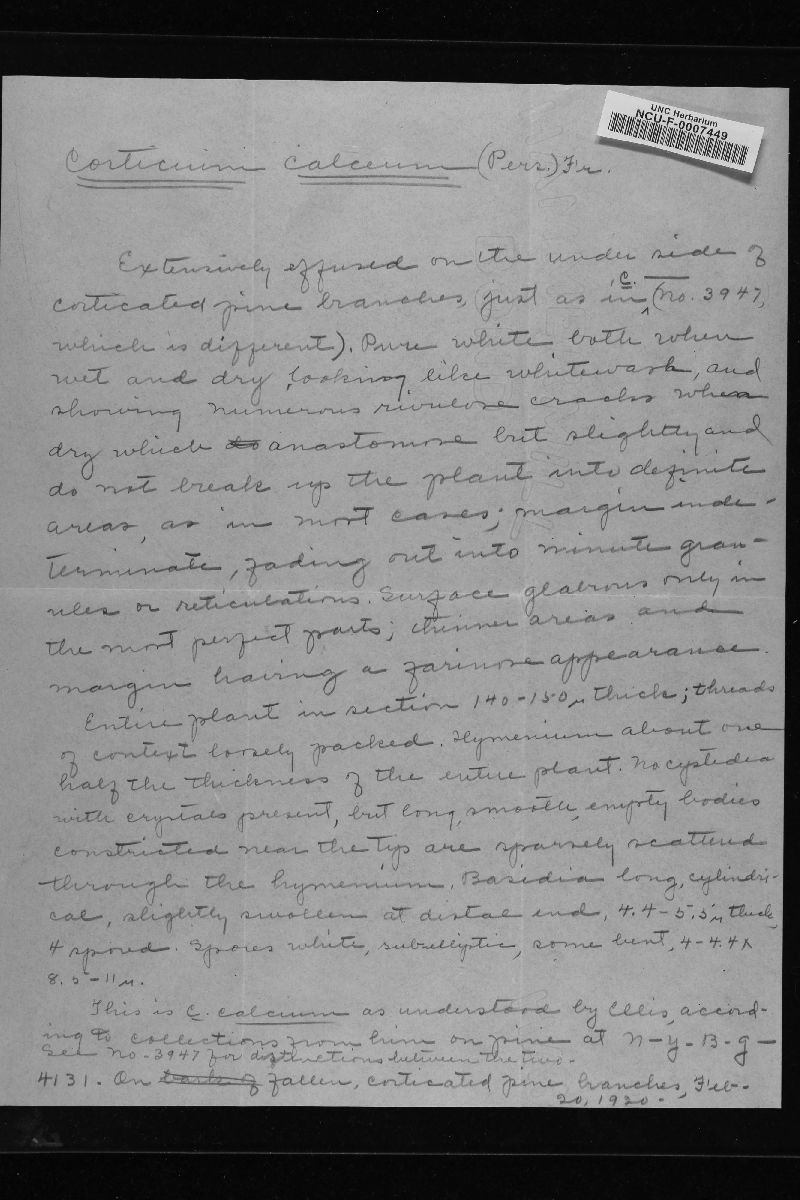 UNC Herbarium
NCU-F-0007449
Corticium calceum (Pers.) Fr.
Extensively effused on the under side of
corticated pine branches, just as in C. (No. 3947,
which is different). Pure white both when
wet and dry, looking like whitewash, and
showing numerous rivulose cracks when
dry which do anastomose but slightly and
do not break up the plant into definite
areas, as in most cases; margin inde-
terminate, fading out into minute gran-
ules or reticulations. Surface glabrous only in
the most perfect parts; thinner areas and
margin having a farinose appearance.
Entire plant in section 140-150µ thick; threads
of context loosely packed. Hymenium about one
half the thickness of the entire plant. No cystidia
with crystals present, but long, smooth, empty bodies
constricted near the tip are sparsely scattered
through the hymenium. Basidia long, cylindri-
cal, slightly swollen at distal end, 4.4-5.5µ thick,
4 spored. Spores white, subelliptic, some bent, 4-4.4x
8.5-11µ.
This is C. calcium as understood by Ellis, accord-
ing to collections from him on pine at N-Y-B-G-
See No-3947 for distinctions between the two.
4131. On bark of fallen, corticated pine branches, Feb-
20, 1920.